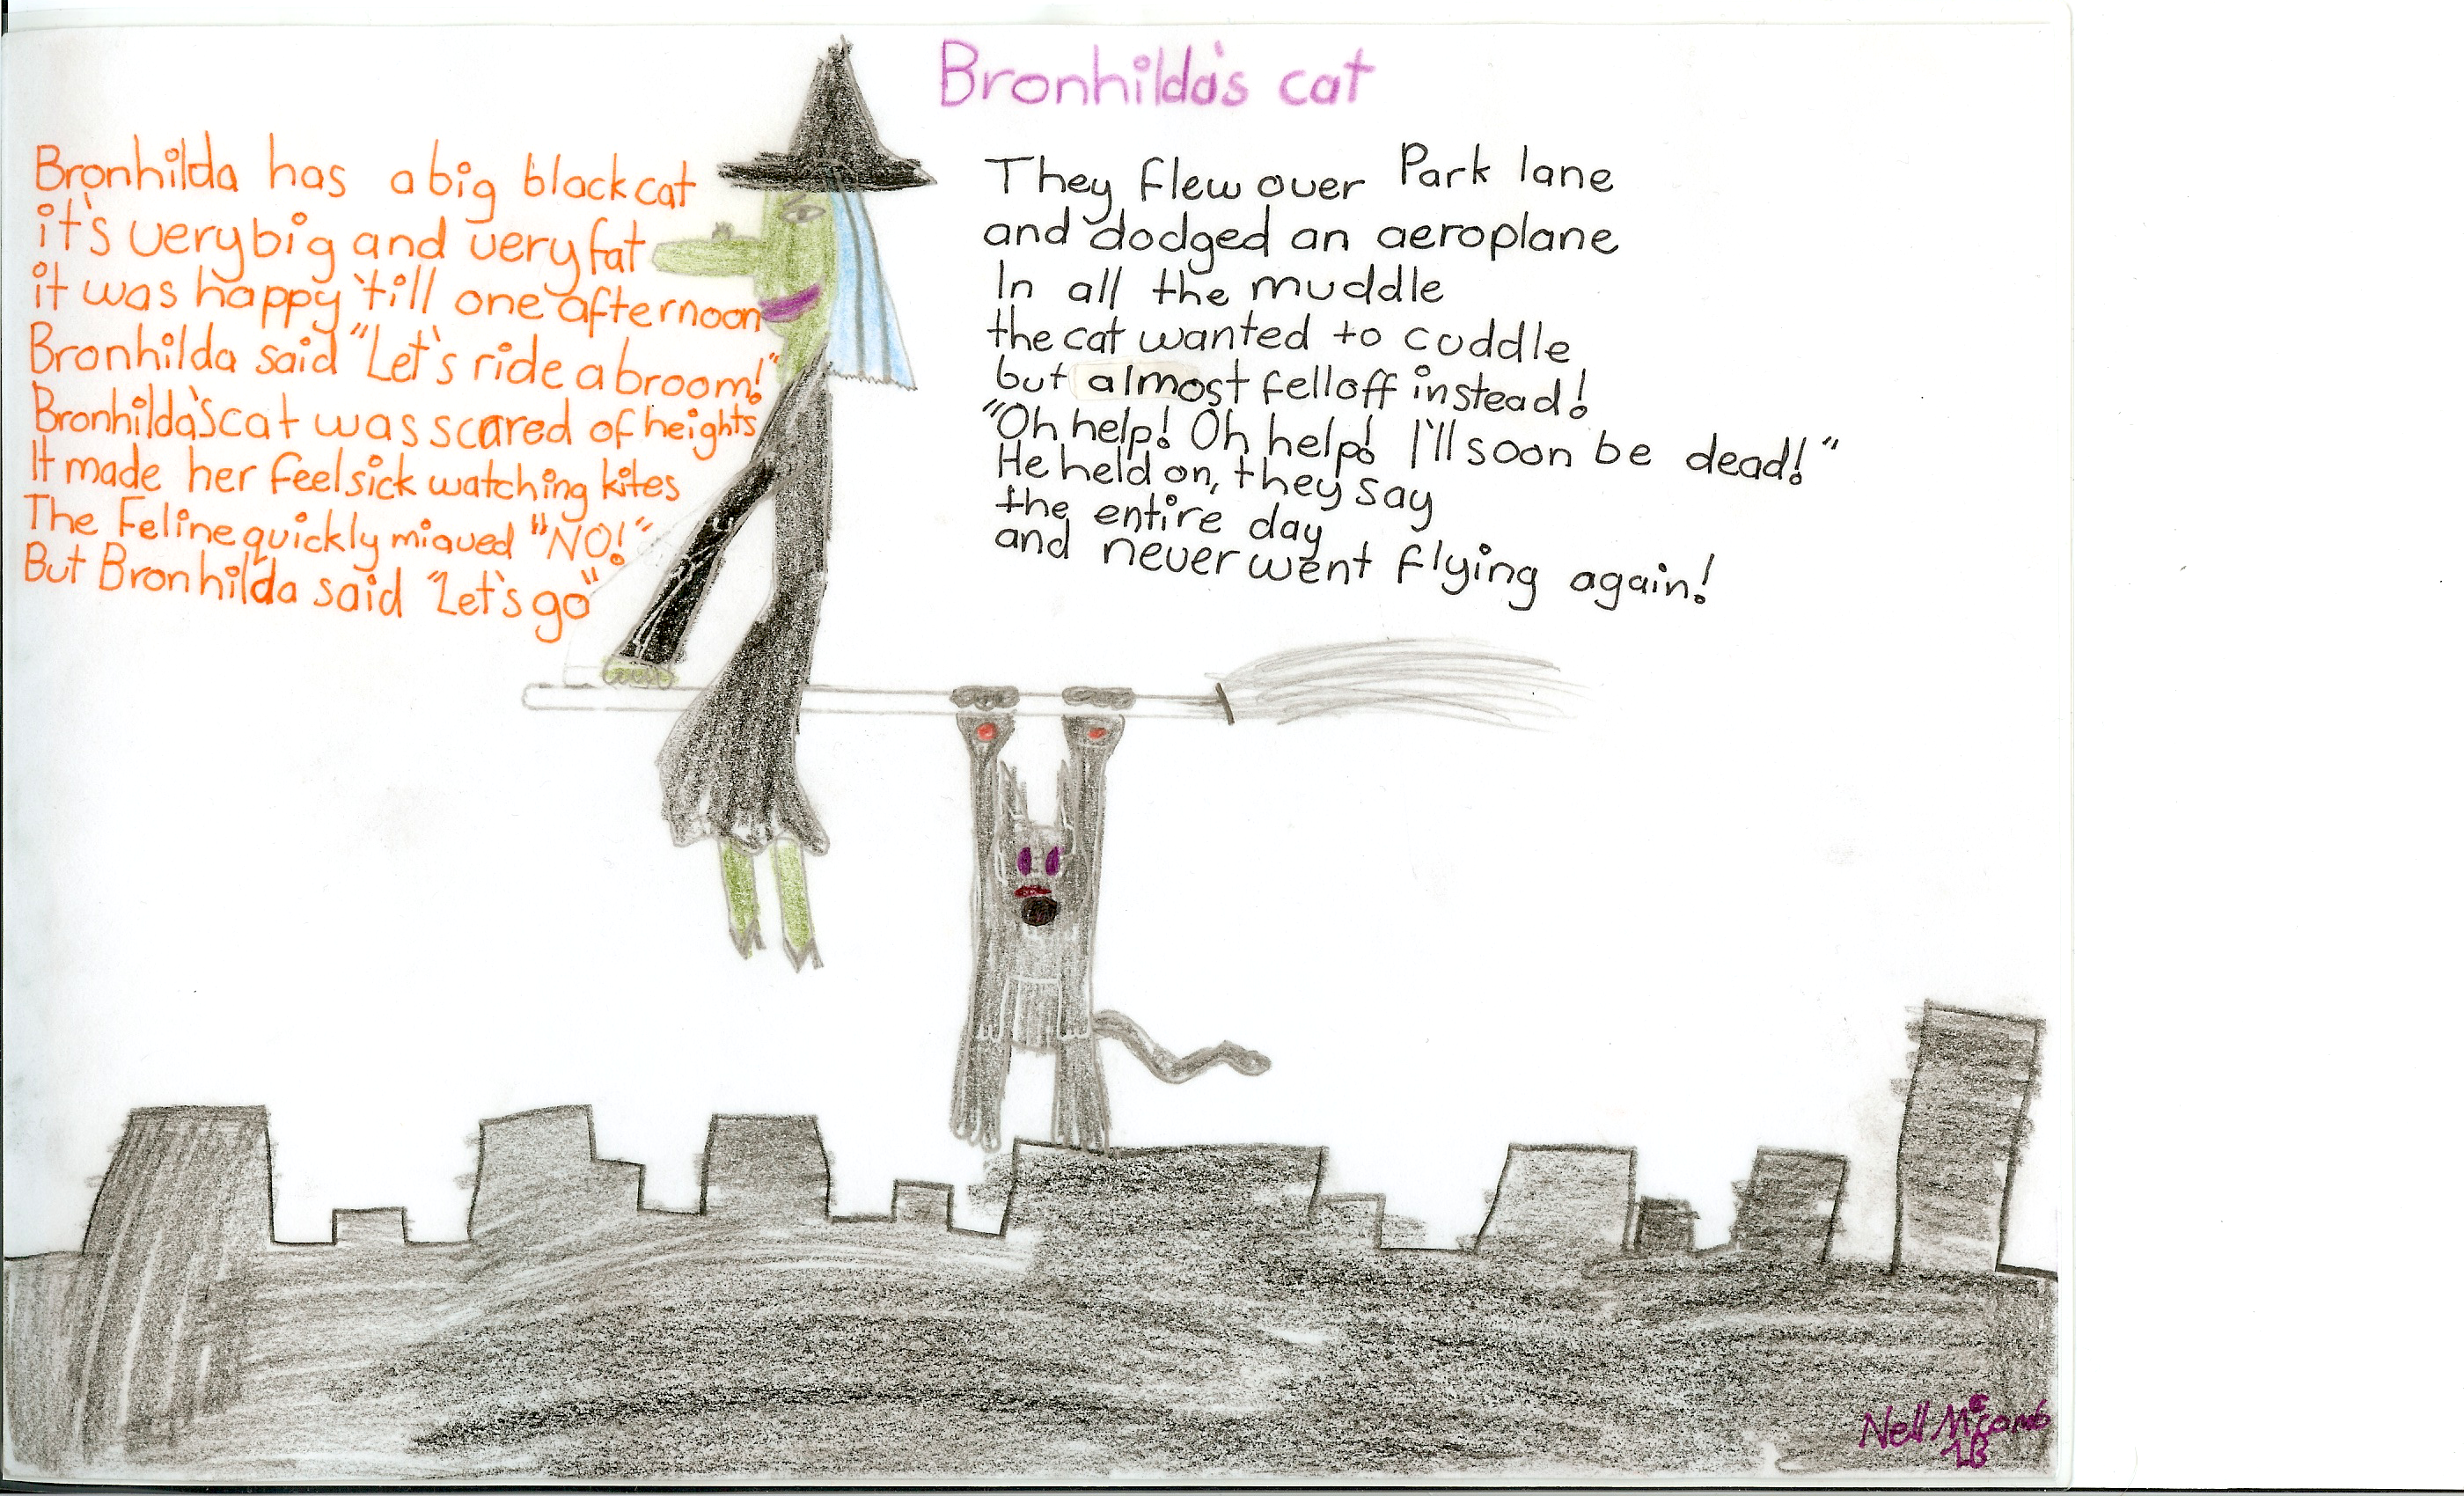 Bronhilda's cat
Bronhilda has a big black cat
it's very big and very fat
it was happy 'till one afternoon
Bronhilda said "Let's ride a broom!"
Bronhilda's cat was scared of heights
It made her feel sick watching kites
The Feline quickly miaued "NO!"
But Bronhilda said "Let's go"
They flew over Park lane
and dodged an aeroplane
In all the muddle
the cat wanted to cuddle
but almost fell off instead!
"Oh help! Oh help! I'll soon be dead!"
He held on, they say
the entire day
and never went flying again!
Nell